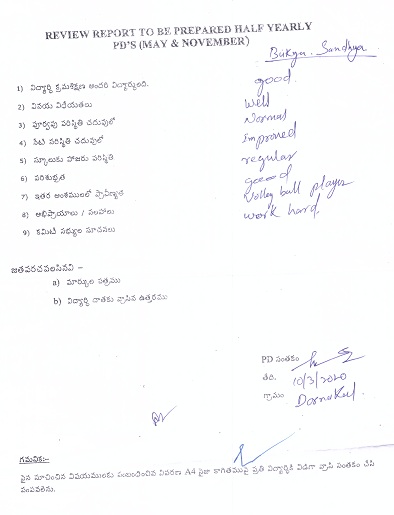 REVIEW REPORT TO BE PREPARED HALF YEARLY
PD'S (MAY & NOVEMBER)
Bukya. Sandhya
1) విద్యార్థి క్రమశిక్షణ అందరి విద్యార్థులది. good
2) వినయ విధేయతలు well
3) పూర్వపు పరిస్థితి చదువులో Normal
4) నేటి పరిస్థితి చదువులో Improved
5) స్కూలుకు హాజరు పరిస్థితి regular
6) పరిశుభ్రత good
7) ఇతర అంశములలో ప్రావీణ్యత Volley ball player
8) అభిప్రాయాలు / సలహాలు work hard.
9) కమిటి సభ్యుల సూచనలు
జతపరచవలసినవి :-
a) మార్కుల పత్రము
b) విద్యార్థి దాతకు వ్రాసిన ఉత్తరము
PD సంతకం
తేది. 10/3/2020
గ్రామం Dornakal
గమనిక:-
పైన సూచించిన విషయములకు సంబంధించిన వివరణ A4 సైజు కాగితముపై ప్రతి విద్యార్థికి విడిగా వ్రాసి సంతకం చేసి
పంపవలెను.